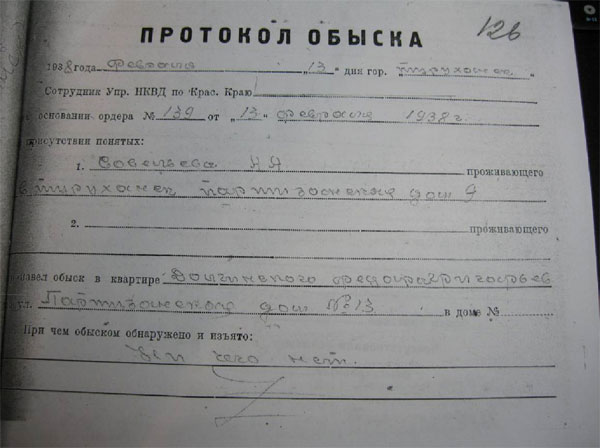 126
ПРОТОКОЛ ОБЫСКА
1938 года февраля „13" дня гор. Туруханск
Сотрудник Упр. НКВД по Крас. Краю
основании ордера № 139 от „13" февраля 1938 г.
присутствии понятых:
1. А Я проживающего
Туруханск партизанская дом 9
2. проживающего
обыск в квартире Долгинского
Партизанской дом № 13 в доме №
При чем обыском обнаружено и изъято:
чего нет.